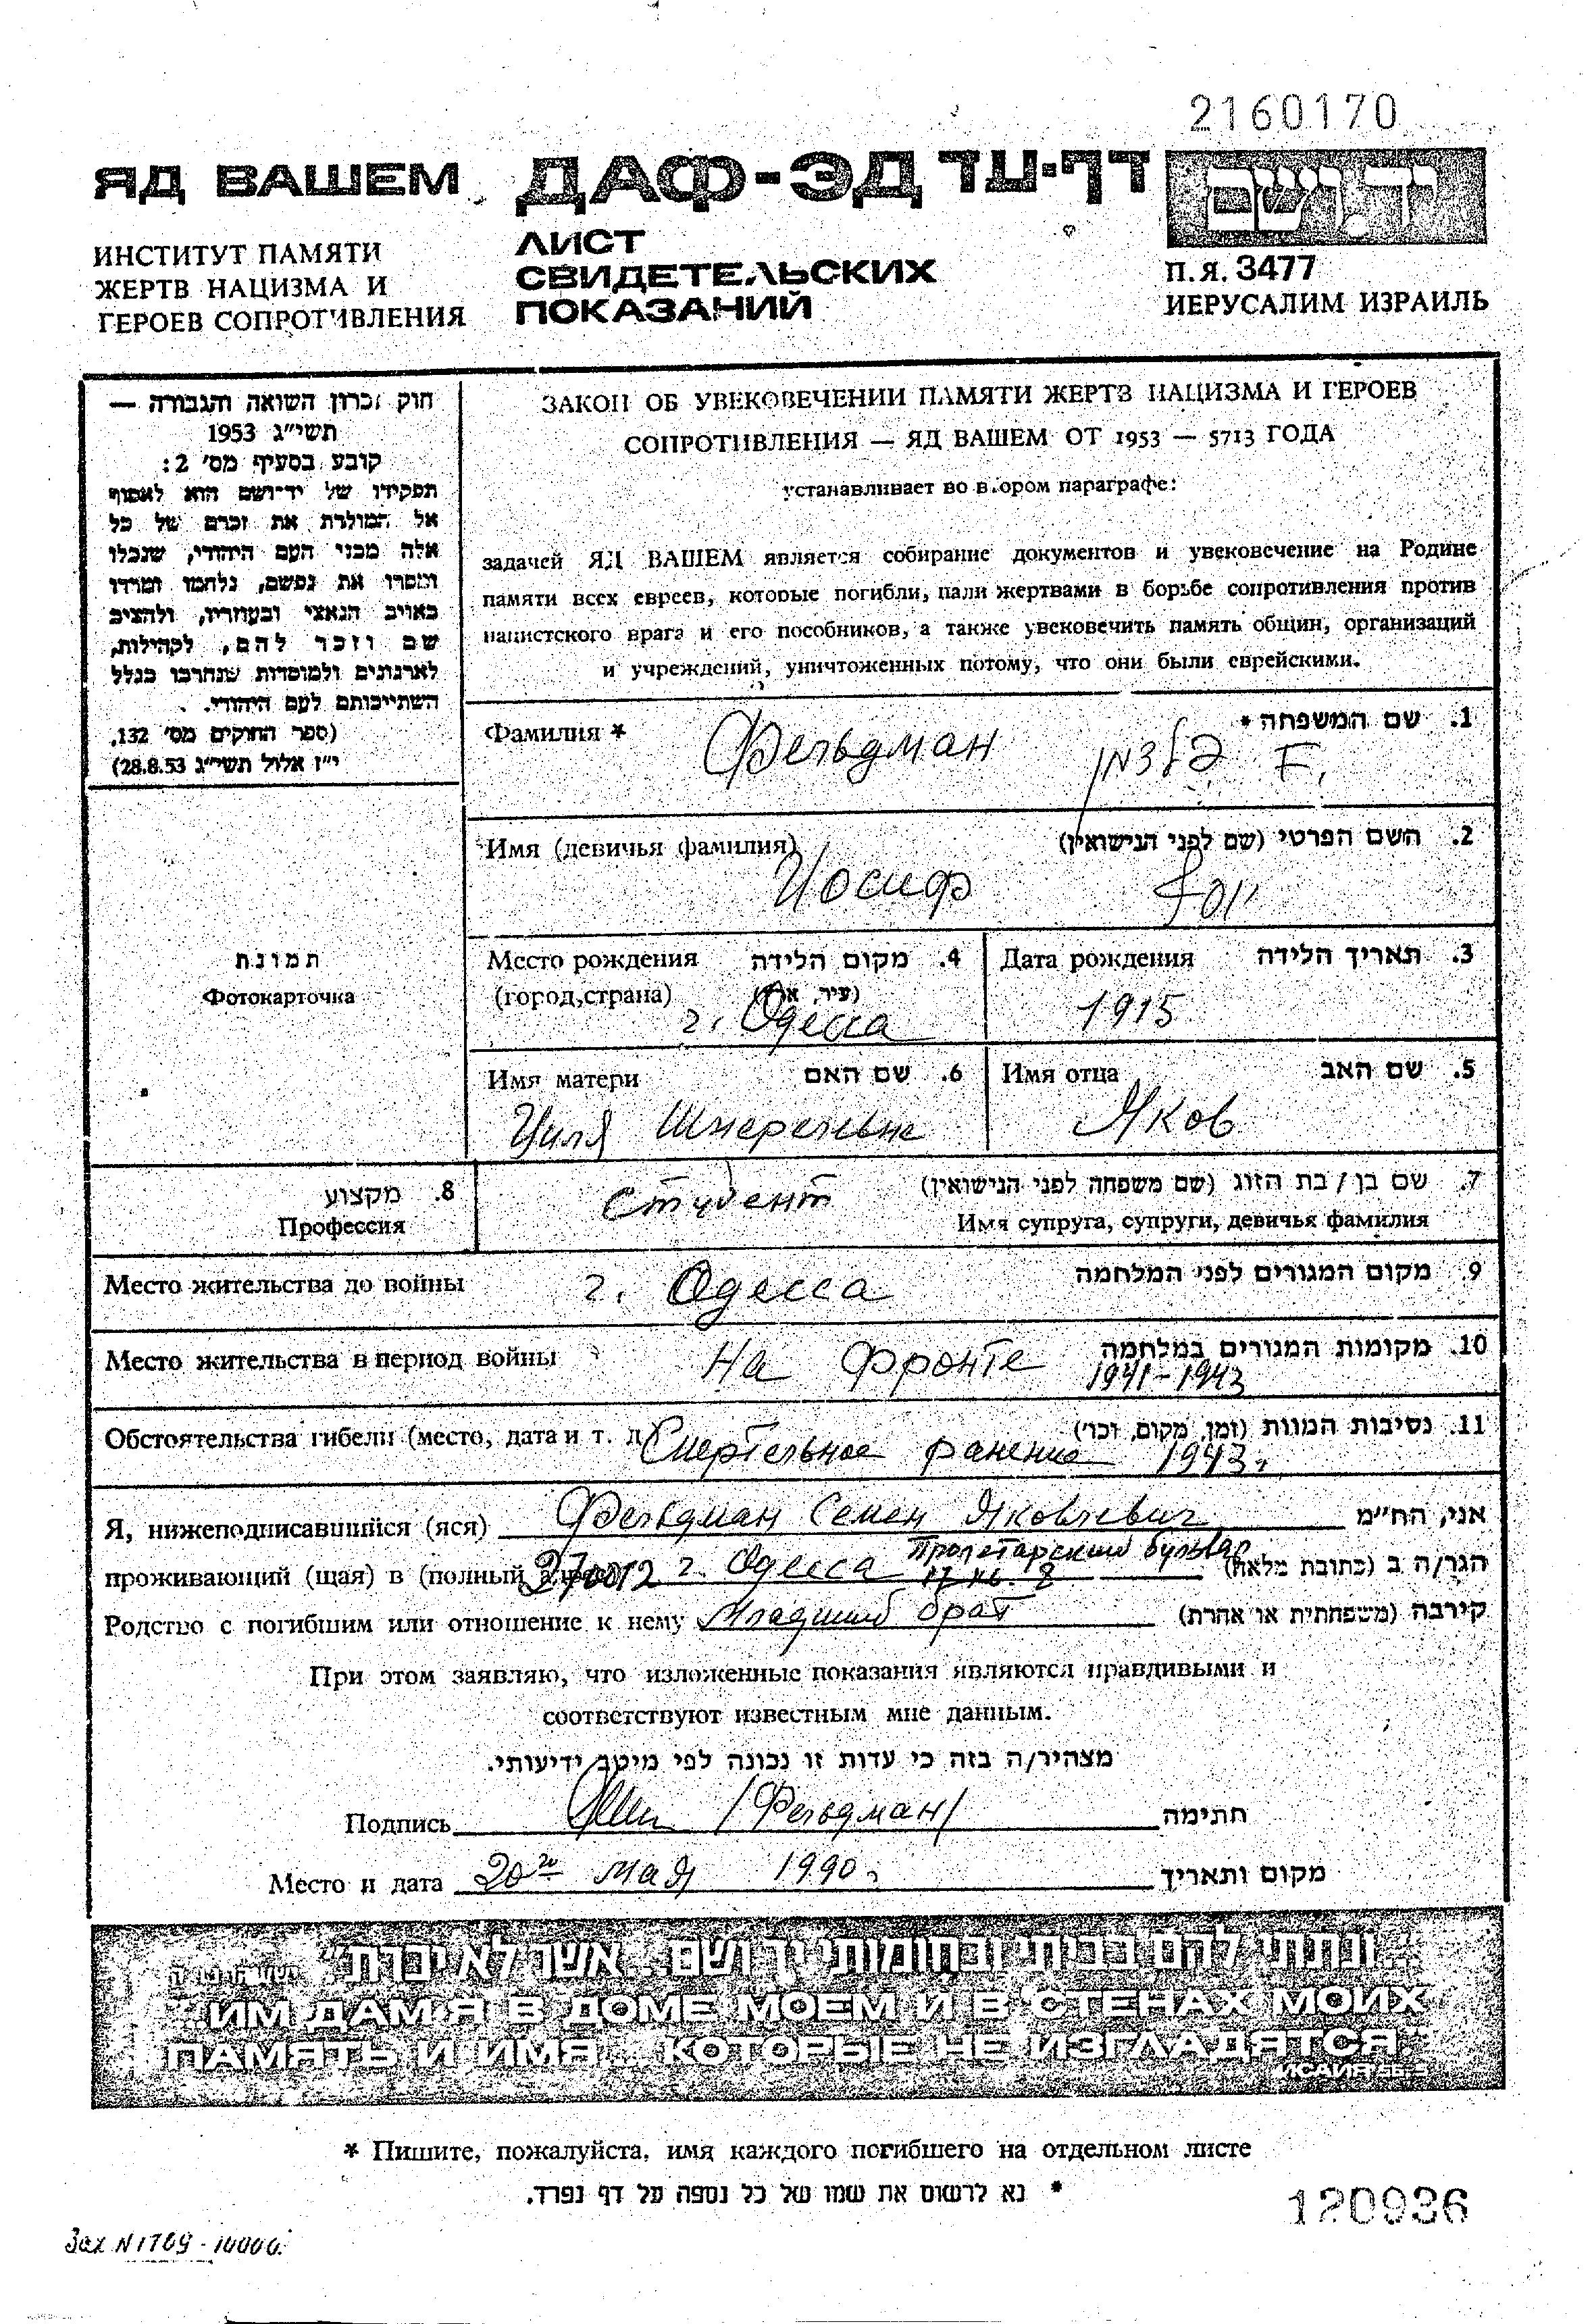 2160170
ЯД ВАШЕМ
ДАФ-ЭД דף-עד
יד ושם
ИНСТИТУТ ПАМЯТИ
ЖЕРТВ НАЦИЗМА И
ГЕРОЕВ СОПРОТИВЛЕНИЯ
ЛИСТ
СВИДЕТЕЛЬСКИХ
ПОКАЗАНИЙ
П.Я. 3477
ИЕРУСАЛИМ ИЗРАИЛЬ
חוק זכרון השואה והגבורה —
תשי"ג 1953
קובע בסעיף מס' 2:
תפקידו של יד-ושם הוא לאסוף
אל המולדת את זכרם של כל
אלה מבני העם היהודי, שנפלו
ומסרו את נפשם, נלחמו ומרדו
באויב הנאצי ובעוזריו, ולהציב
שם וזכר להם, לקהילות,
לארגונים ולמוסדות שנחרבו בגלל
השתייכותם לעם היהודי.
(ספר החוקים מס' 132,
י"ז אלול תשי"ג 28.8.53)
ЗАКОН ОБ УВЕКОВЕЧЕНИИ ПАМЯТИ ЖЕРТВ НАЦИЗМА И ГЕРОЕВ
СОПРОТИВЛЕНИЯ — ЯД ВАШЕМ ОТ 1953 — 5713 ГОДА
устанавливает во втором параграфе:
задачей ЯД ВАШЕМ является собирание документов и увековечение на Родине
памяти всех евреев, которые погибли, пали жертвами в борьбе сопротивления против
нацистского врага и его пособников, а также увековечить память общин, организаций
и учреждений, уничтоженных потому, что они были еврейскими.
Фамилия * Фельдман פלדמן F. 1. שם המשפחה *
Имя (девичья фамилия) 2. השם הפרטי (שם לפני הנישואין)
Иосиф יוסף
Место рождения 4. מקום הלידה
(город,страна) (עיר, ארץ)
г. Одесса
Дата рождения 3. תאריך הלידה
1915
Имя матери 6. שם האם
Циля
Имя отца 5. שם האב
Яков
8. מקצוע
Профессия
студент
7. שם בן / בת הזוג (שם משפחה לפני הנישואין)
Имя супруга, супруги, девичья фамилия
תמונת
Фотокарточка
Место жительства до войны г. Одесса 9. מקום המגורים לפני המלחמה
Место жительства в период войны На фронте 10. מקומות המגורים במלחמה
1941-1943
Обстоятельства гибели (место, дата и т. д. 11. נסיבות המוות (זמן, מקום, וכו')
Смертельное ранение 1943г.
Я, нижеподписавшийся (яся) Фельдман Семен Яковлевич אני, הח"מ
Пролетарский бульвар
проживающий (щая) в (полный 270012 г. Одесса הגר/ה ב (כתובת מלאה)
Родство с погибшим или отношение к нему Младший брат קירבה (משפחתית או אחרת)
При этом заявляю, что изложенные показания являются правдивыми и
соответствуют известным мне данным.
מצהיר/ה בזה כי עדות זו נכונה לפי מיטב ידיעותי.
Подпись /Фельдман/ חתימה
Место и дата 20го мая 1990г מקום ותאריך
"...ונתתי להם בביתי ובחומותי יד ושם... אשר לא יכרת"
"ИМ ДАМ Я В ДОМЕ МОЕМ И В СТЕНАХ МОИХ
ПАМЯТЬ И ИМЯ... КОТОРЫЕ НЕ ИЗГЛАДЯТСЯ"
ИСАИЯ
* Пишите, пожалуйста, имя каждого погибшего на отдельном листе
* נא לרשום את שמו של כל נספה על דף נפרד.
120936
Зак N 1769 - 10000.